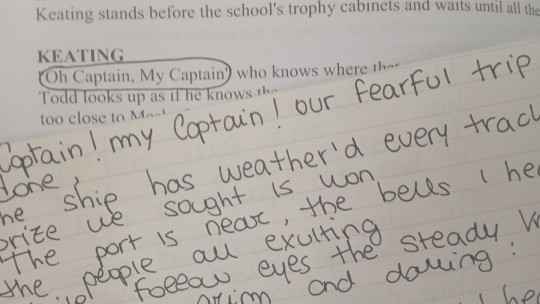 Keating stands before the school's trophy cabinets and waits until all the
KEATING
'Oh Captain, My Captain' who knows where
Todd looks up as if he knows
too close to
Captain! my Captain! our fearful trip
done,
ship has weather'd every
prize we sought is won
The port is near, the bells I
the people all exulting
follow eyes the steady
grim and daring: